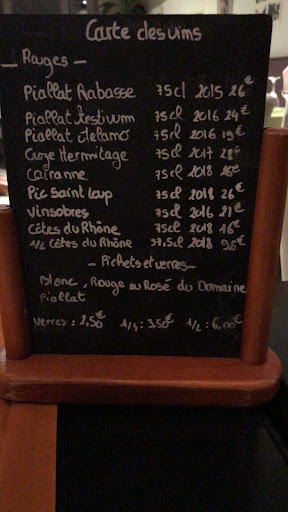 Carte des vins
— Rouges —
Piallat Rabasse 75cl 2015 26€
Piallat Festivum 75cl 2016 24€
Piallat Jelamo 75cl 2016 19€
Croze Hermitage 75cl 2017 28€
Cairanne 75cl 2018
Pic Saint Loup 75cl 2018 26€
Vinsobres 75cl 2016 21€
Côtes du Rhône 75cl 2018 16€
1/2 Côtes du Rhône 37,5cl 2018
— Pichets et verres —
Blanc, Rouge ou Rosé du Domaine
Piallat
Verres : 2,50€ 1/4 : 3,50€ 1/2 : 6,00€